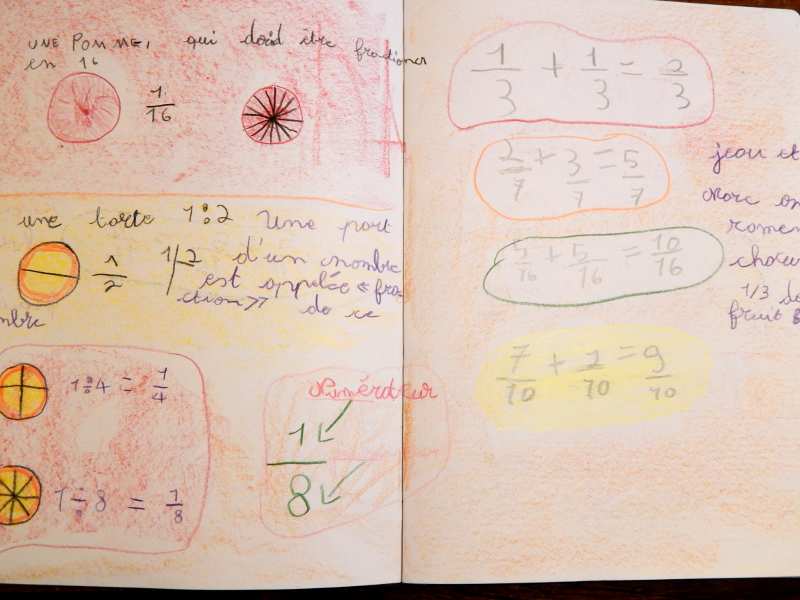 UNE POMME, qui doid être fractioner
en 16
1/16
une torte 1:2 Une part
1/2 1|2 d'un nombre
est appelée « frac
ction >> de ce
mbre
1:4 = 1/4
1÷8 = 1/8
Numérateur
1/8
1/3 + 1/3 = 2/3
2/7 + 3/7 = 5/7
5/16 + 5/16 = 10/16
7/10 + 2/10 = 9/10
jean et
Marc on
ramen
chacu
1/3 de
fruit